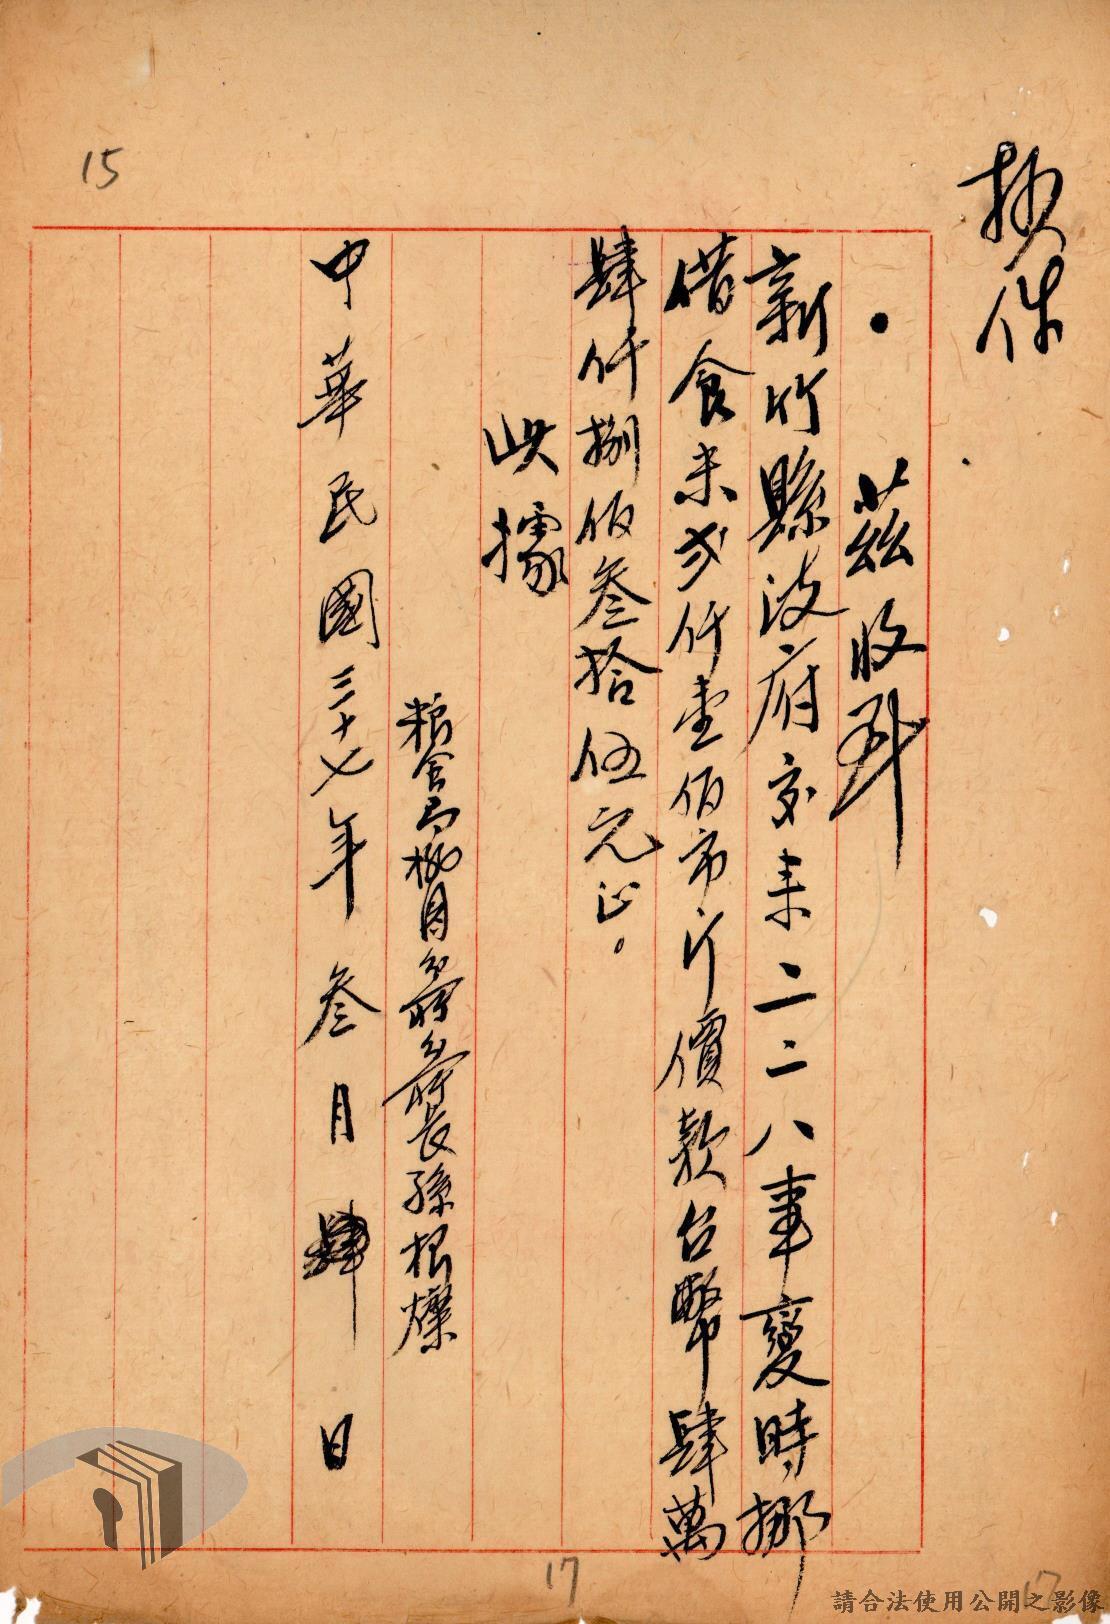 抄件
茲收到
新竹縣政府交来二二八事變時挪
借食米弍仟壹佰市斤價款台幣肆萬
肆仟捌佰叁拾伍元正。
此據
粮食局桃園事務所長孫根燦
中華民國三十七年叁月肆日
15
17
17
請合法使用公開之影像